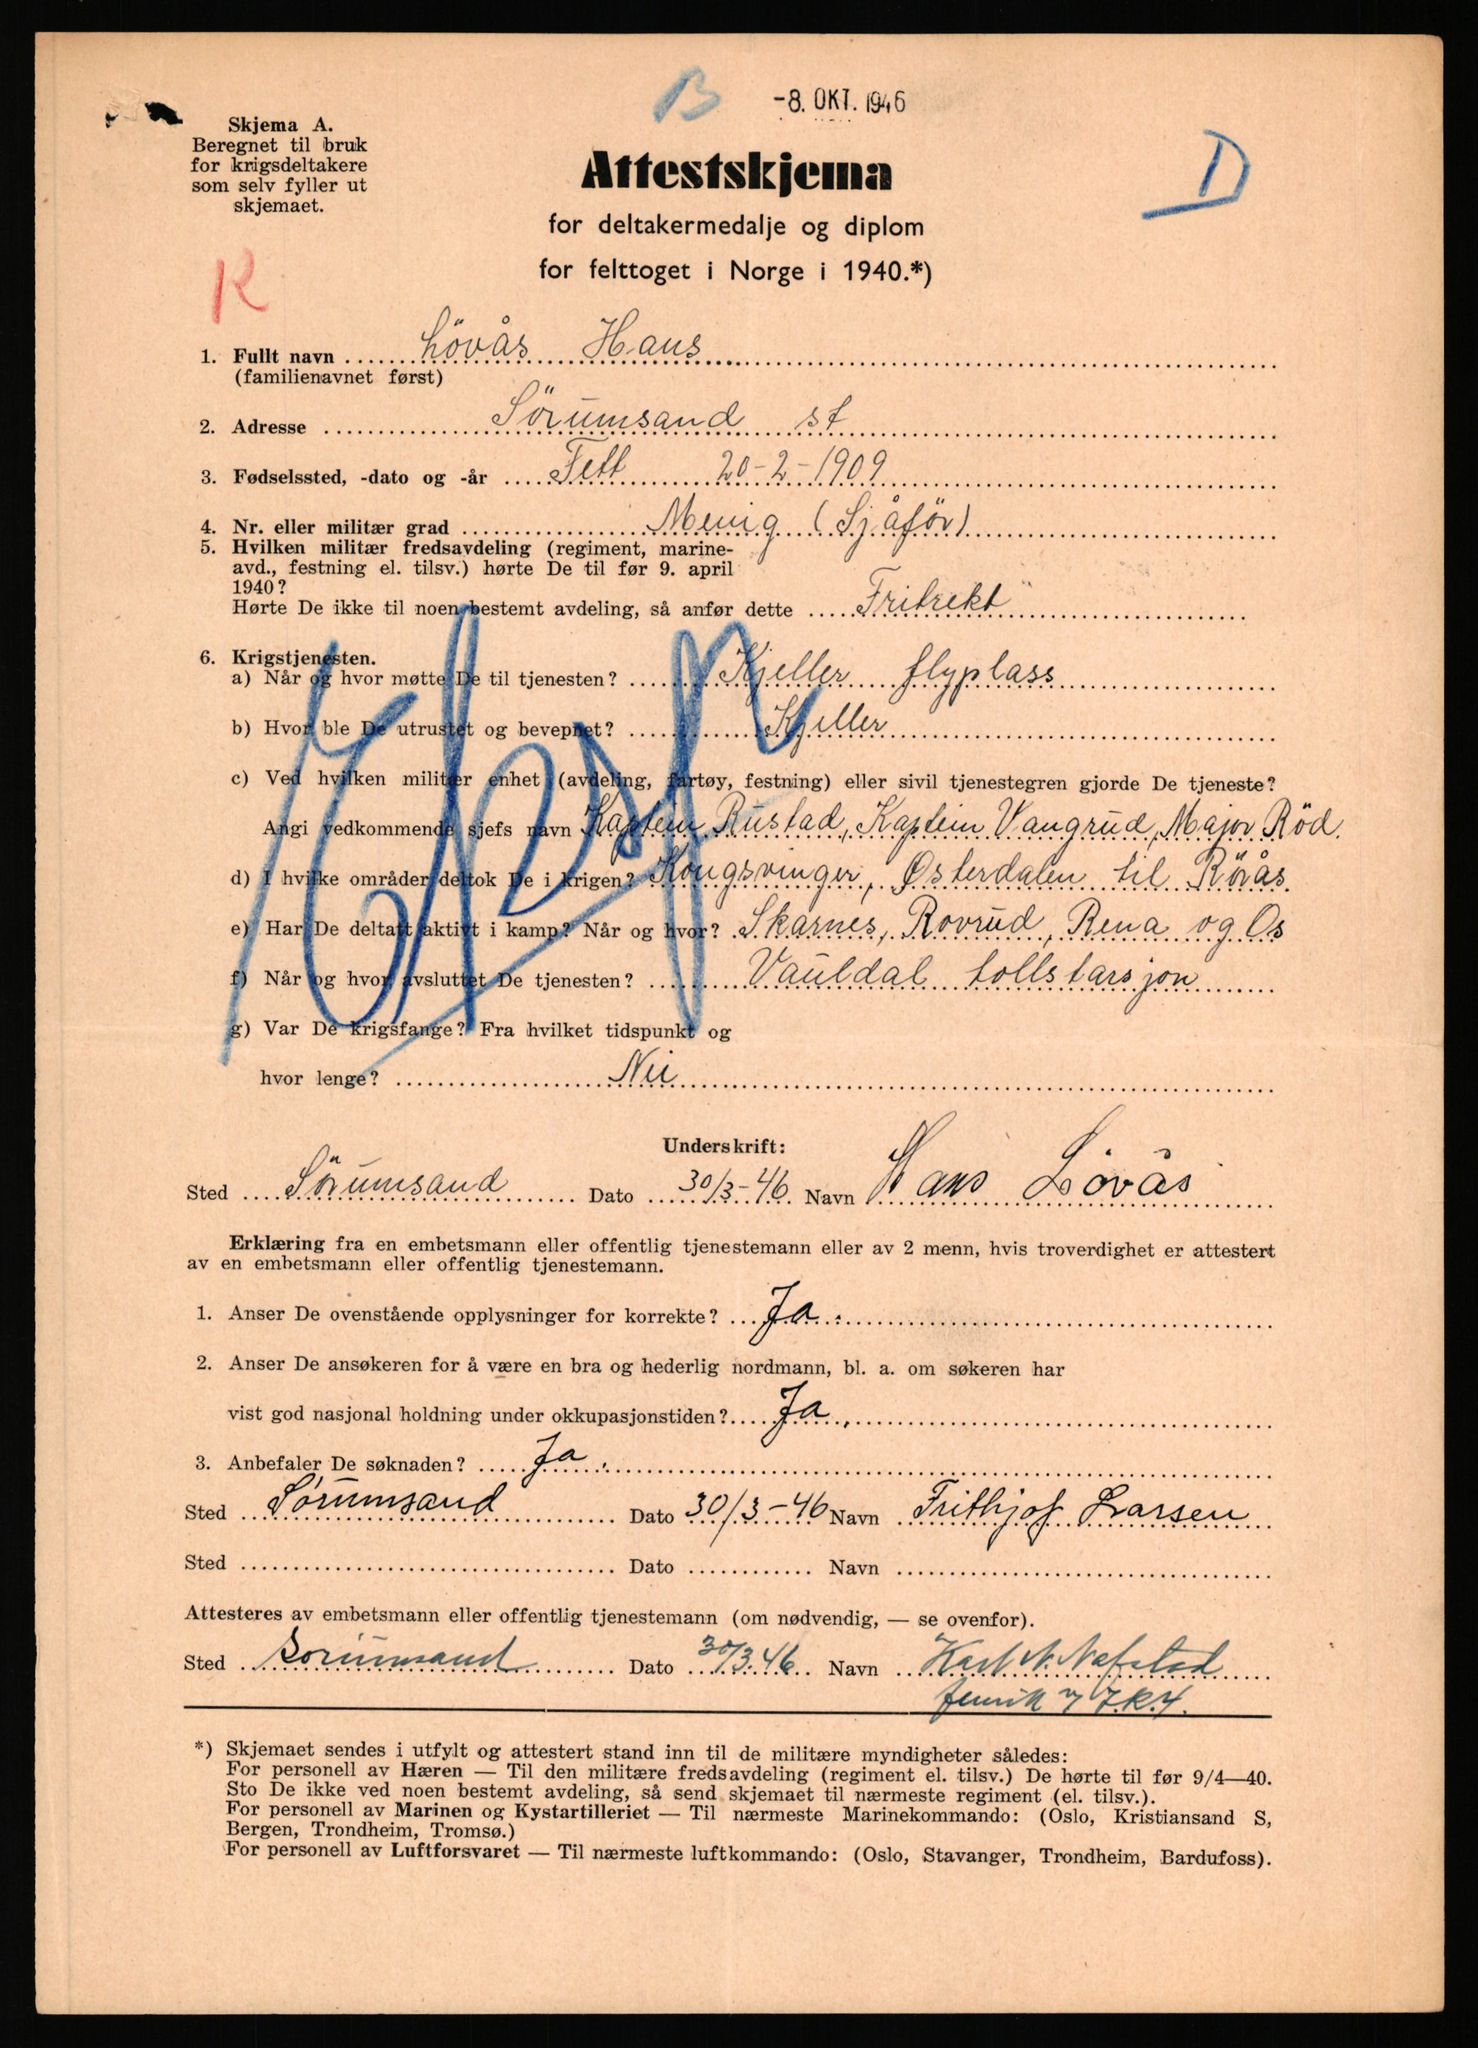 B
-8. OKT. 1946
D
Skjema A.
Beregnet til bruk
for krigsdeltakere
som selv fyller ut
skjemaet.
Attestskjema
for deltakermedalje og diplom
for felttoget i Norge i 1940.*)
K
1. Fullt navn Lövås Hans
(familienavnet først)
2. Adresse Sörumsand st
3. Fødselssted, -dato og -år Fett 20-2-1909
4. Nr. eller militær grad Menig (Sjåför)
5. Hvilken militær fredsavdeling (regiment, marine-
avd., festning el. tilsv.) hørte De til før 9. april
1940?
Hørte De ikke til noen bestemt avdeling, så anfør dette Fritrekt
6. Krigstjenesten.
a) Når og hvor møtte De til tjenesten? Kjeller flyplass
b) Hvor ble De utrustet og bevepnet? Kjeller
c) Ved hvilken militær enhet (avdeling, fartøy, festning) eller sivil tjenestegren gjorde De tjeneste?
Angi vedkommende sjefs navn Kaptein Rustad, Kaptein Vangrud, Major Röd.
d) I hvilke områder deltok De i krigen? Kongsvinger, Østerdalen til Rörås
e) Har De deltatt aktivt i kamp? Når og hvor? Skarnes, Rovrud, Rena og Os
f) Når og hvor avsluttet De tjenesten? Vauldal tollstarsjon
g) Var De krigsfange? Fra hvilket tidspunkt og
hvor lenge? Nei
Underskrift:
Sted Sörumsand Dato 30/3-46 Navn Hans Lövås
Erklæring fra en embetsmann eller offentlig tjenestemann eller av 2 menn, hvis troverdighet er attestert
av en embetsmann eller offentlig tjenestemann.
1. Anser De ovenstående opplysninger for korrekte? Ja.
2. Anser De ansøkeren for å være en bra og hederlig nordmann, bl. a. om søkeren har
vist god nasjonal holdning under okkupasjonstiden? Ja.
3. Anbefaler De søknaden? Ja.
Sted Sørumsand Dato 30/3-46 Navn Frithjof Larsen
Sted Dato Navn
Attesteres av embetsmann eller offentlig tjenestemann (om nødvendig, — se ovenfor).
Sted Sørumsand Dato 30/3.46 Navn Karl N. Nafstad
*) Skjemaet sendes i utfylt og attestert stand inn til de militære myndigheter således:
For personell av Hæren — Til den militære fredsavdeling (regiment el. tilsv.) De hørte til før 9/4—40.
Sto De ikke ved noen bestemt avdeling, så send skjemaet til nærmeste regiment (el. tilsv.).
For personell av Marinen og Kystartilleriet — Til nærmeste Marinekommando: (Oslo, Kristiansand S,
Bergen, Trondheim, Tromsø.)
For personell av Luftforsvaret — Til nærmeste luftkommando: (Oslo, Stavanger, Trondheim, Bardufoss).